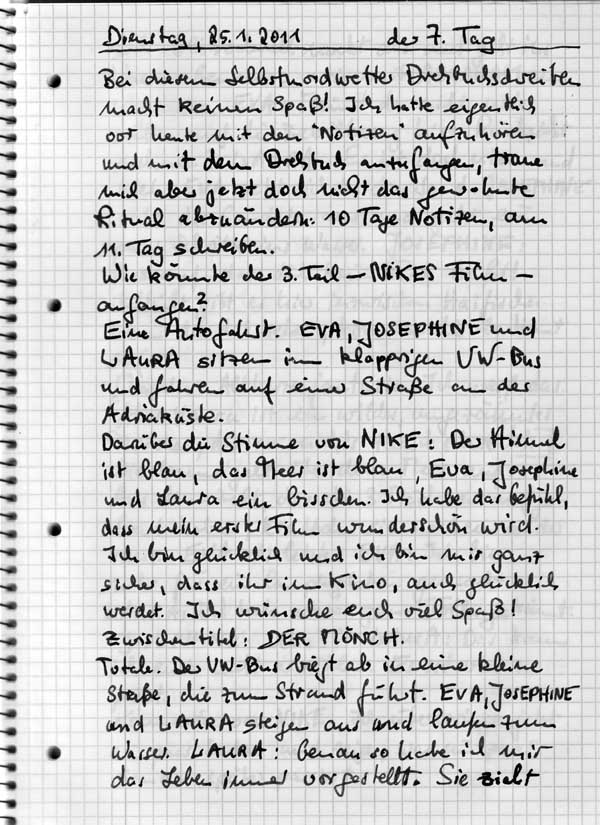 Dienstag, 25.1.2011 der 7. Tag
Bei diesem Selbstmordwetter Drehbuchschreiben
macht keinen Spaß! Ich hatte eigentlich
vor heute mit den "Notizen" aufzuhören
und mit dem Drehbuch anzufangen, traue
mich aber jetzt doch nicht das gewohnte
Ritual abzuändern: 10 Tage Notizen, am
11. Tag schreiben.
Wie könnte der 3. Teil – NIKES Film –
anfangen?
Eine Autofahrt. EVA, JOSEPHINE und
LAURA sitzen im klapprigen VW-Bus
und fahren auf einer Straße an der
Adriaküste.
Darüber die Stimme von NIKE: Der Himmel
ist blau, das Meer ist blau, Eva, Josephine
und Laura ein bisschen. Ich habe das Gefühl,
dass mein erster Film wunderschön wird.
Ich bin glücklich und ich bin mir ganz
sicher, dass ihr im Kino, auch glücklich
werdet. Ich wünsche euch viel Spaß!
Zwischentitel: DER MÖNCH.
Totale. Der VW-Bus biegt ab in eine kleine
Straße, die zum Strand führt. EVA, JOSEPHINE
und LAURA steigen aus und laufen zum
Wasser. LAURA: Genau so habe ich mir
das Leben immer vorgestellt. Sie zieht